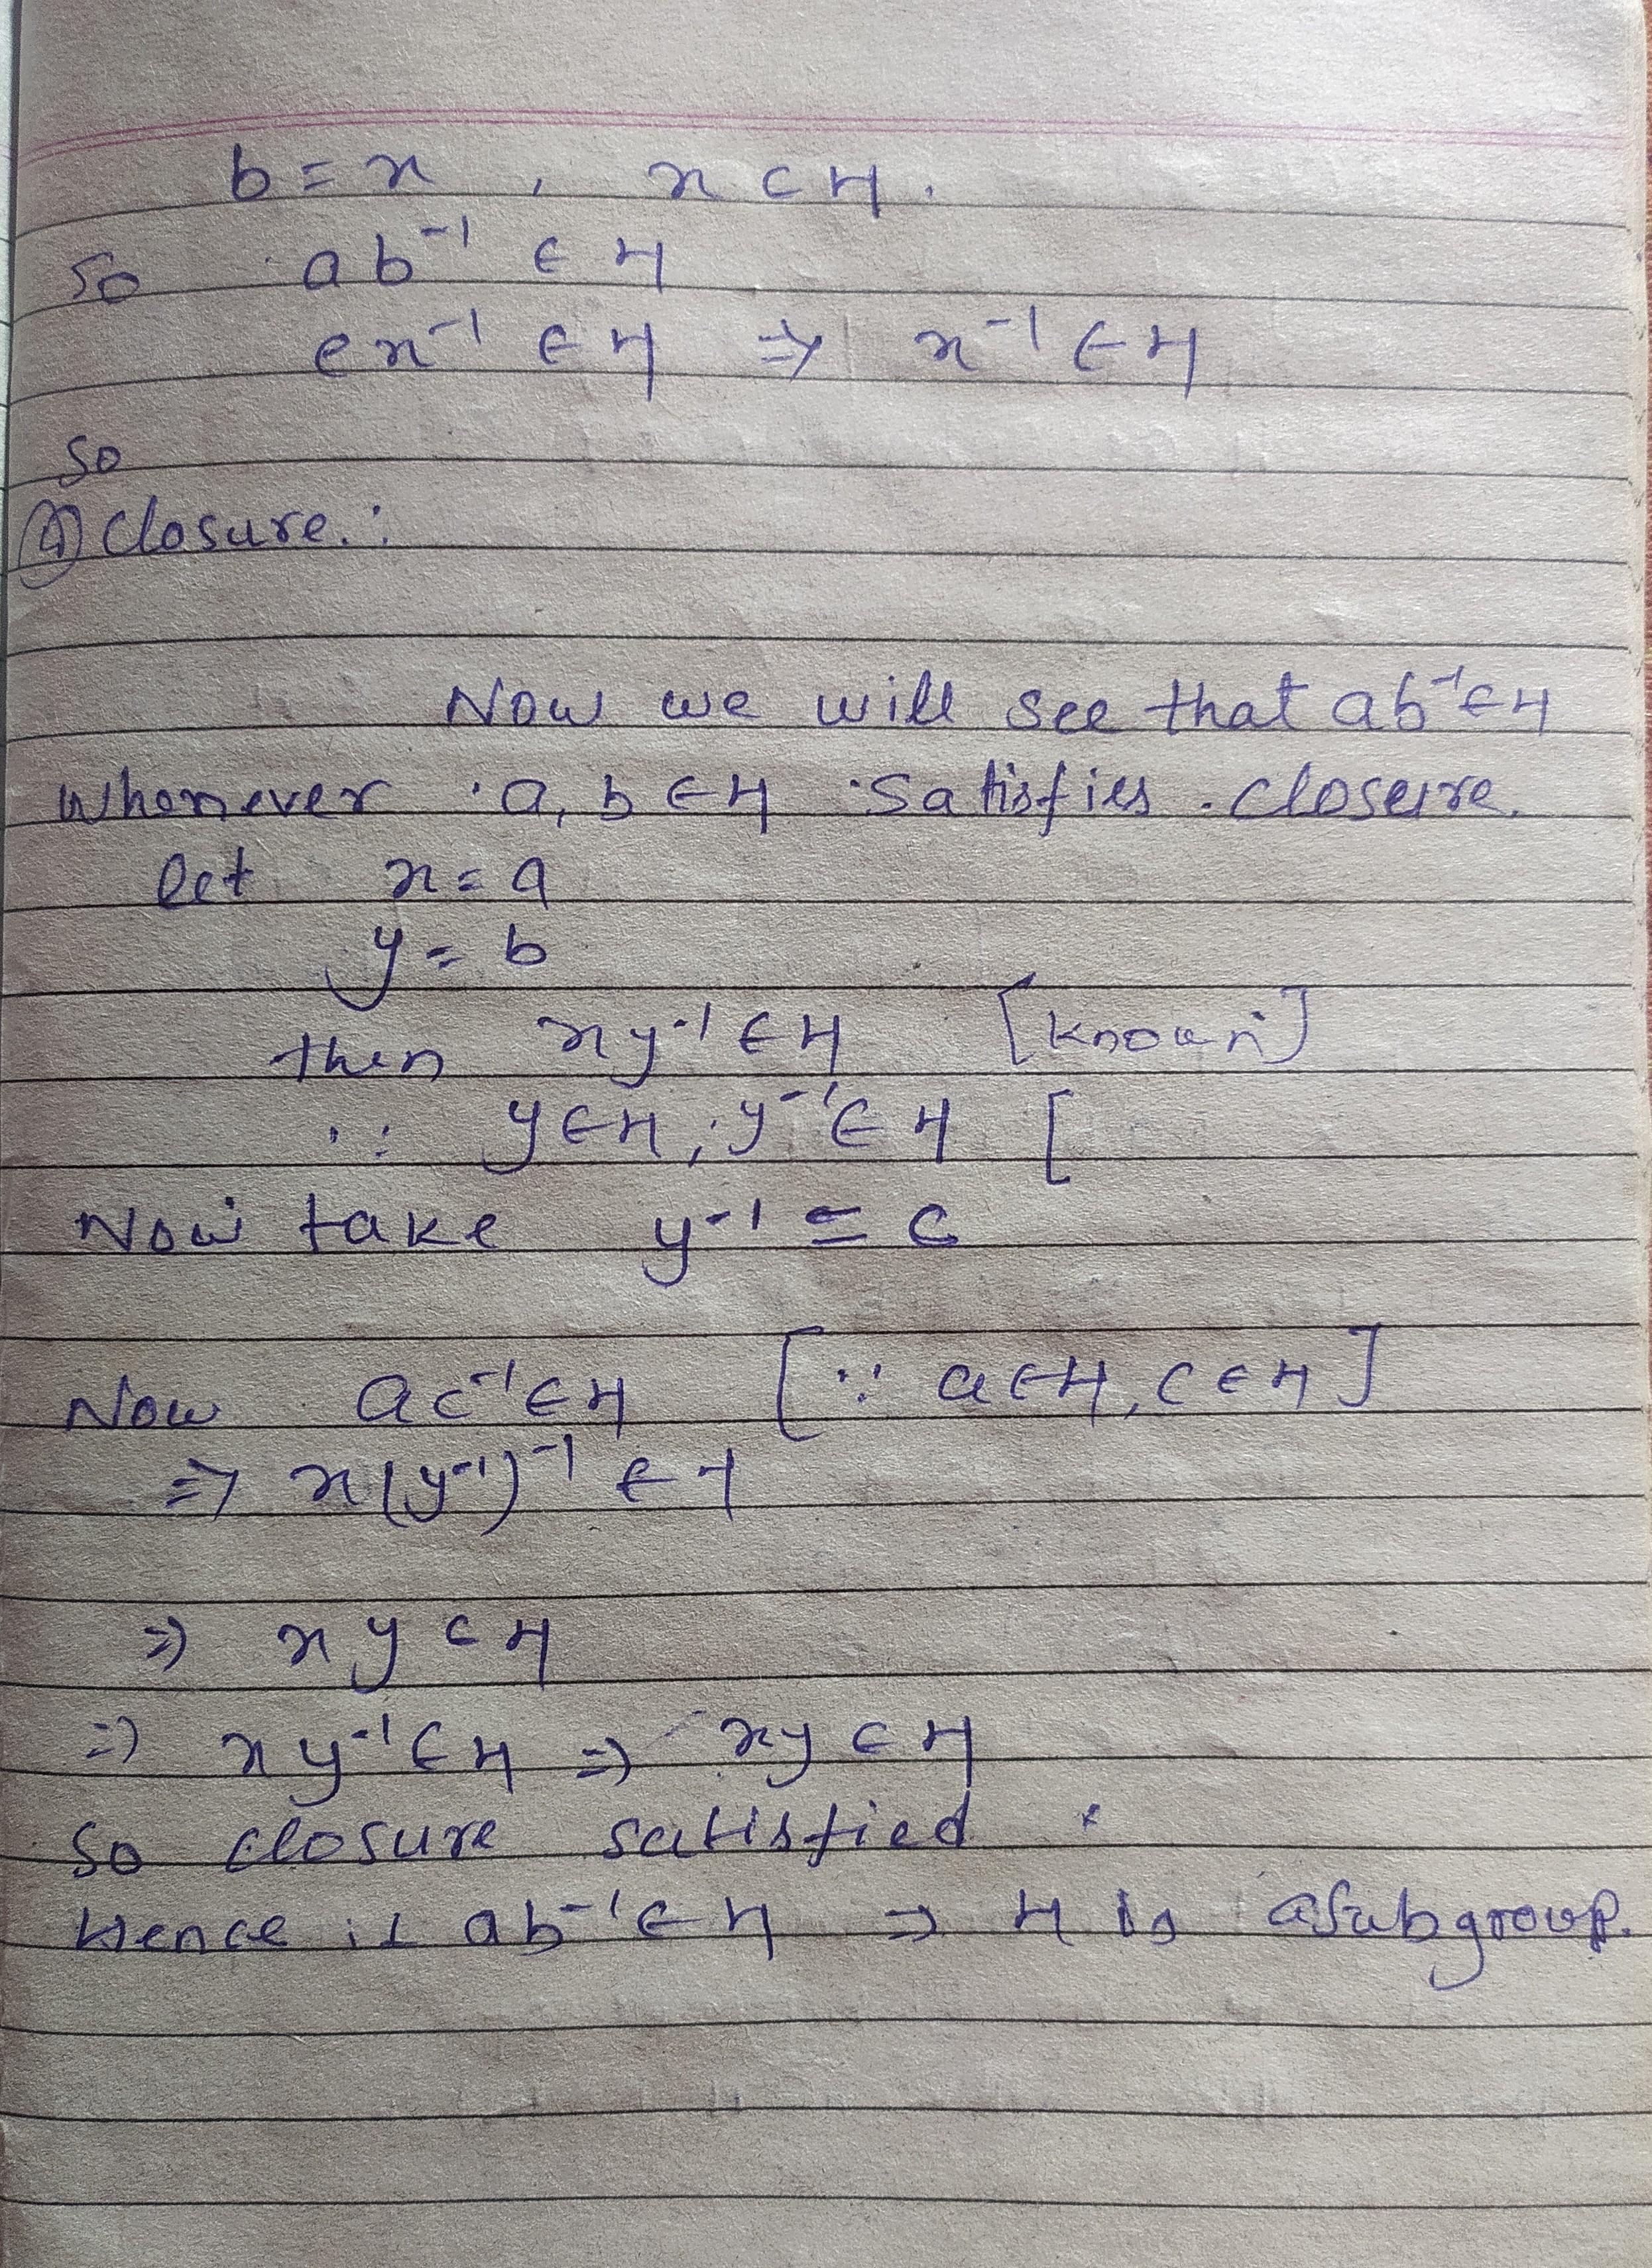 b = x , x ∈ H.
So ab⁻¹ ∈ H
ex⁻¹ ∈ H ⇒ x⁻¹ ∈ H
So
④ Closure :
Now we will see that ab⁻¹ ∈ H
whenever a, b ∈ H satisfies closure.
let x = a
y = b
then xy⁻¹ ∈ H [known]
∵ y ∈ H, y⁻¹ ∈ H [
Now take y⁻¹ = c
Now ac⁻¹ ∈ H [∵ a ∈ H, c ∈ H]
⇒ x(y⁻¹)⁻¹ ∈ H
⇒ xy ∈ H
⇒ xy⁻¹ ∈ H ⇒ xy ∈ H
So closure satisfied
Hence if ab⁻¹ ∈ H → H is a subgroup.